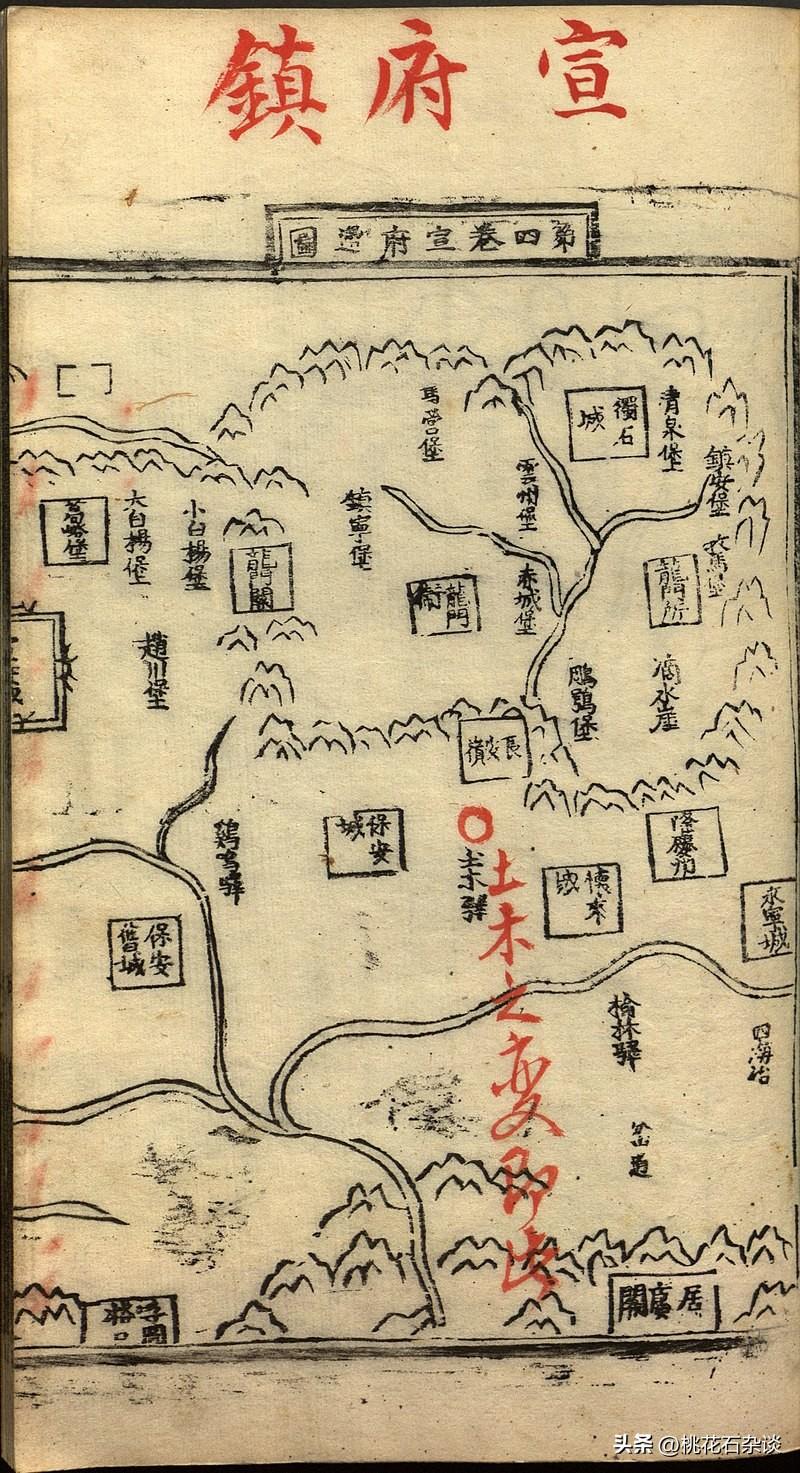 宣府鎮
第四卷宣府邊圖
獨石城
清泉堡
馬營堡
雲州堡
鎮安堡
鎮寧堡
牧馬堡
龍門所
赤城堡
龍門衛
龍門關
小白楊堡
大白楊堡
葛峪堡
趙川堡
滴水崖
鵰鶚堡
長安嶺
隆慶州
懷來城
永寧城
土木驛
土木之变即此
保安城
雞鳴驛
保安舊城
榆林驛
四海冶
岔道
居庸關
浮圖峪口
头条 @桃花石杂谈